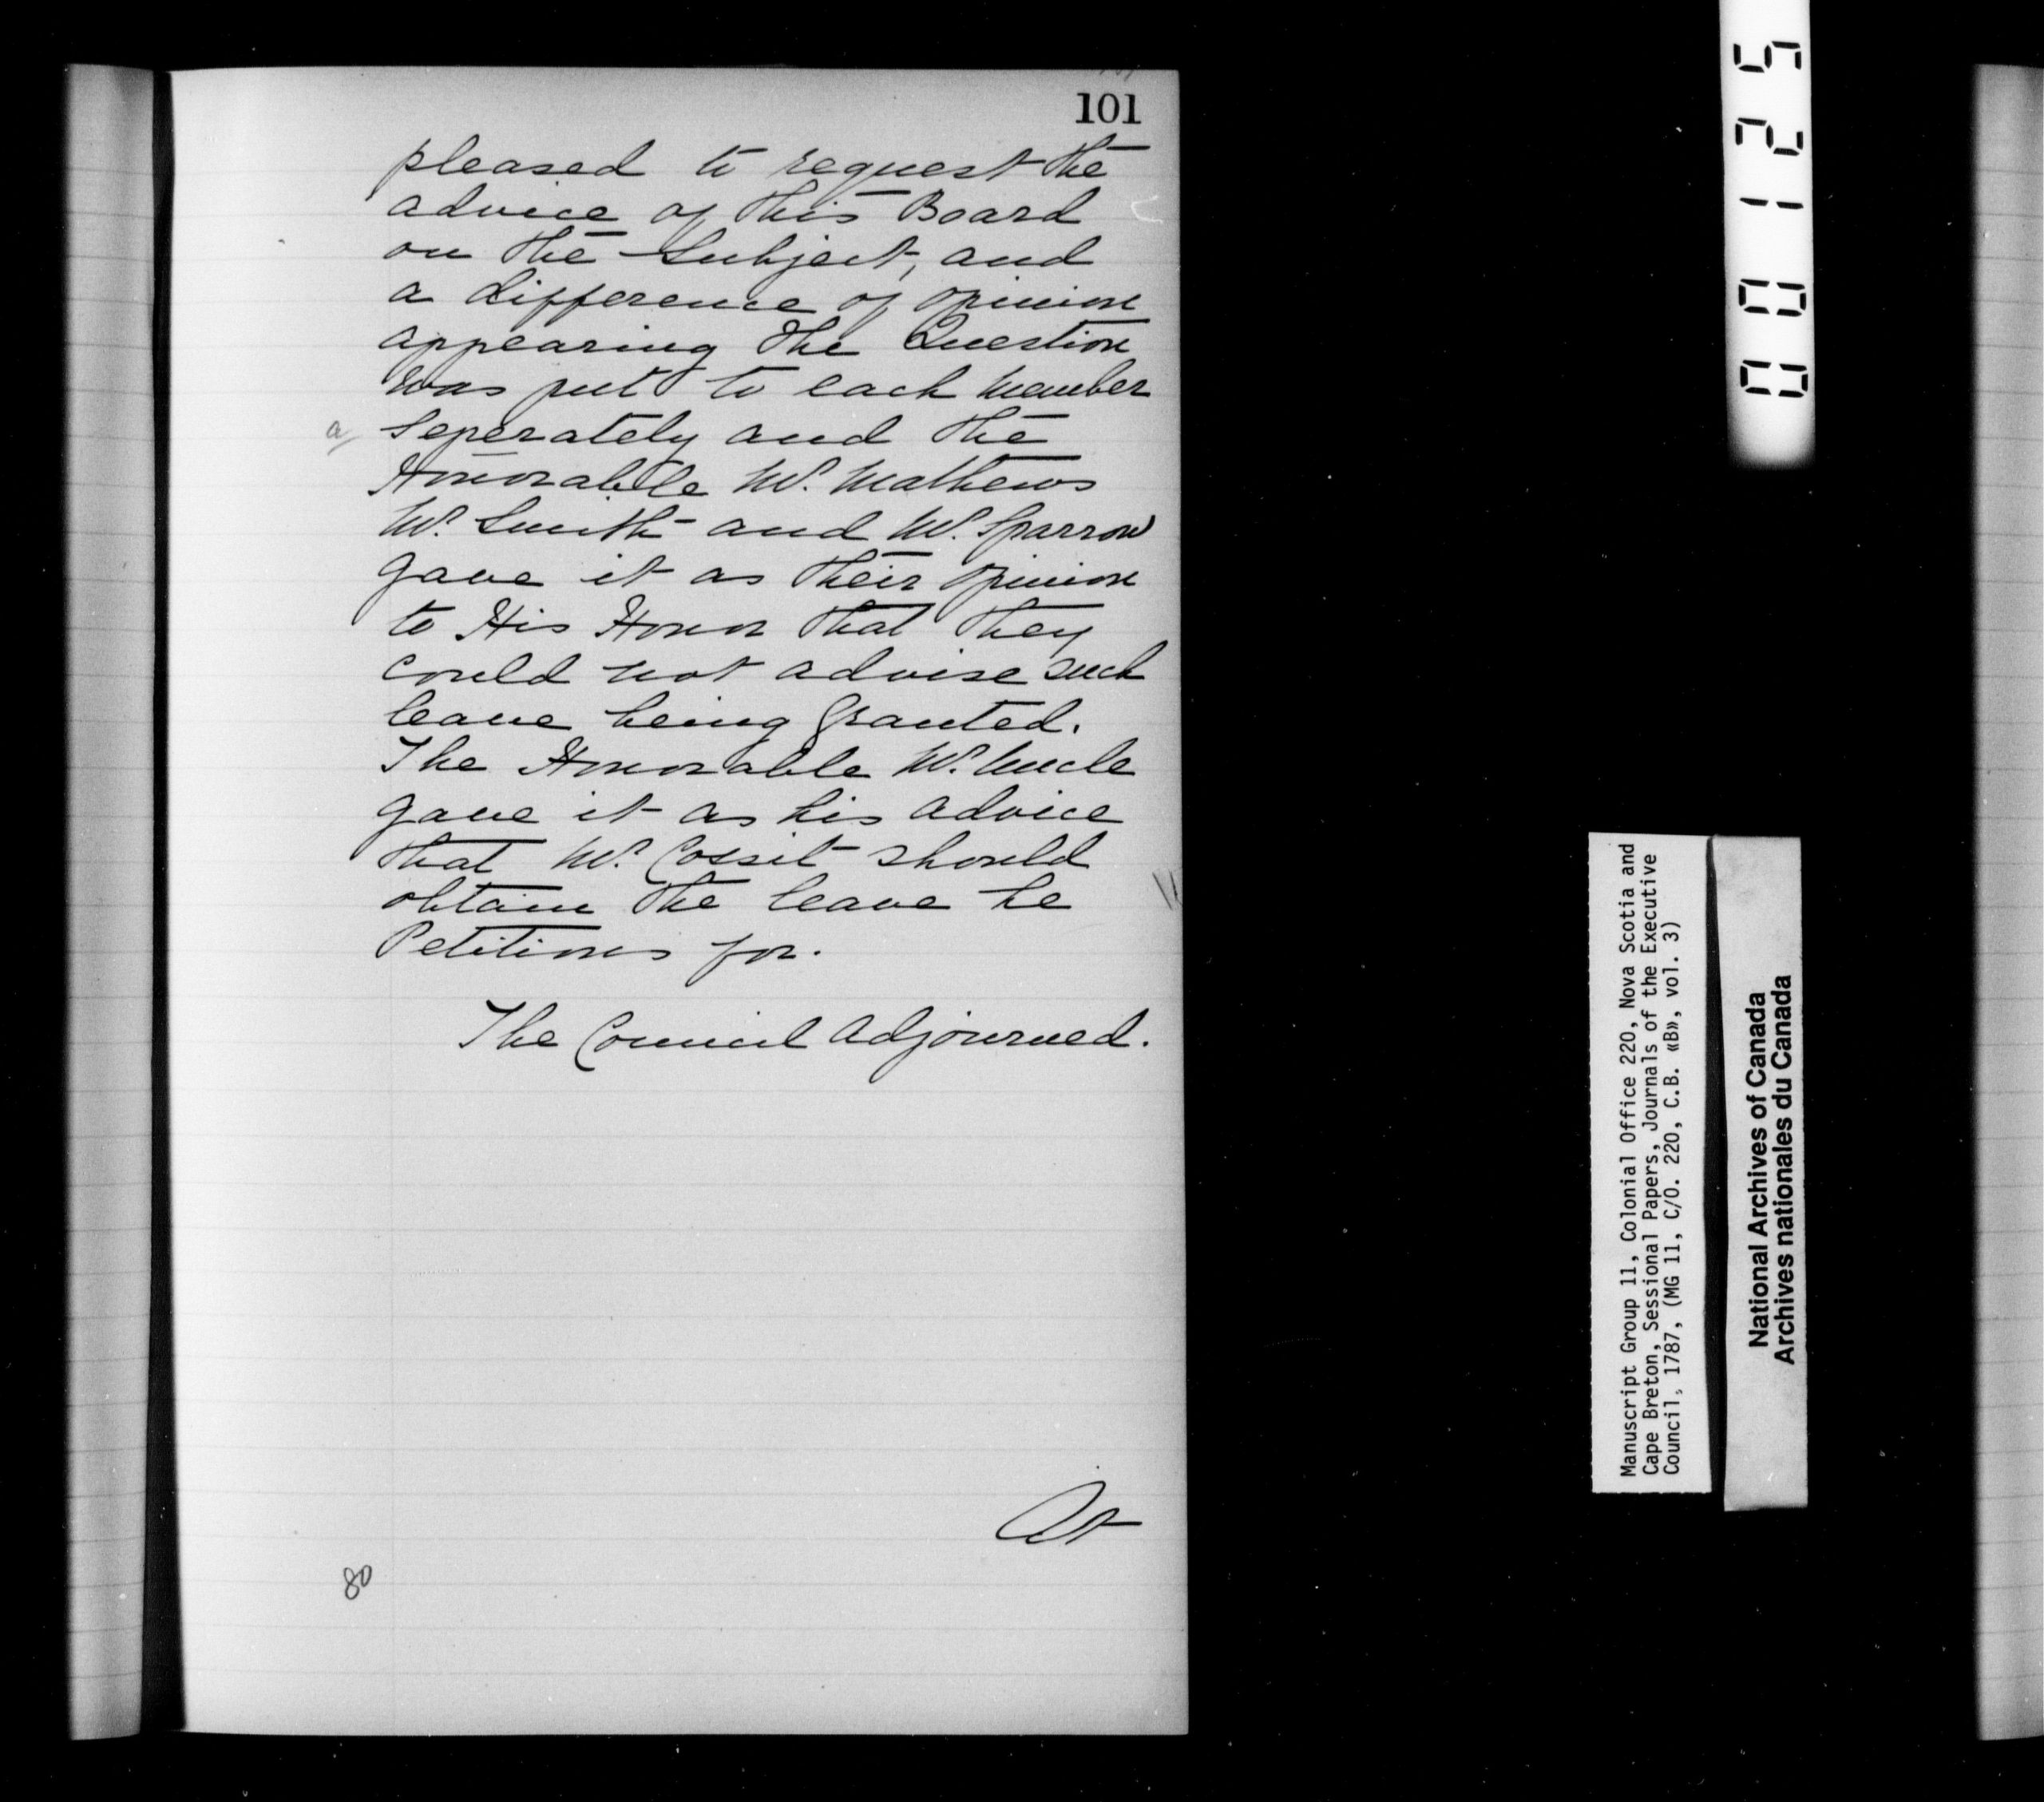 101
pleased to request the
advice of this Board
on the Subject, and
a difference of opinion
appearing the Question
was put to each member
a
Seperately and the
Honorable Mr. Mathews
Mr. Smith and Mr. Sparrow
gave it as their opinion
to His Honor that they
could not advise such
leave being Granted.
The Honorable Mr. Uncle
gave it as his advice
that Mr. Cossit should
obtain the leave he
Petitions for.
The Council Adjourned.
At
80
00125
Manuscript Group 11, Colonial Office 220, Nova Scotia and
Cape Breton, Sessional Papers, Journals of the Executive
Council, 1787, (MG 11, C/O. 220, C.B. «B», vol. 3)
National Archives of Canada
Archives nationales du Canada